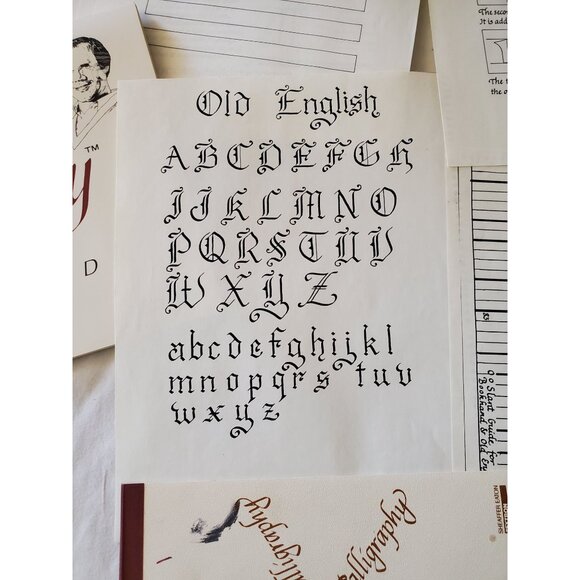 Old English
A B C D E F G H
I J K L M N O
P Q R S T U V
W X Y Z
a b c d e f g h i j k l
m n o p q r s t u v
w x y z
The secon
It is add
The t
the o
TM
y
D
90 Slant Guide for
Bookhand & Old En
SHEAFFER EATON
lligraphy